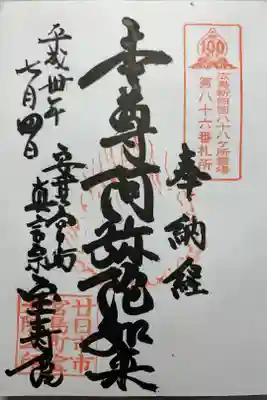 100
広島新四国八十八ヶ所霊場
第八十六番札所
奉納経
本尊阿弥陀如来
安芸宮島
真言宗 宝寿院
平成卅年
七月四日
廿日市市
宮島町